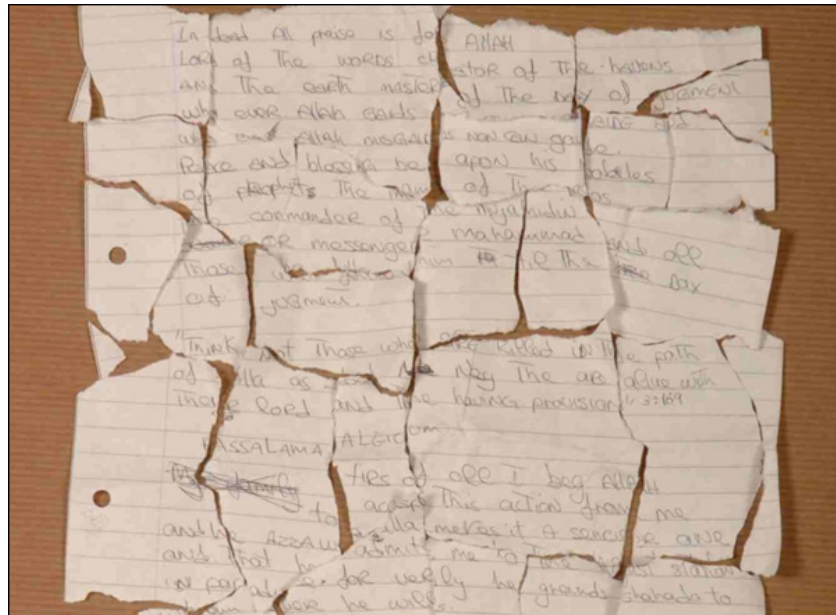 Indeed All praise is for ALLAH
Lord of The words creator of The heavens
and The earth master of the Day of JUDGMENT
who ever Allah
who ever Allah misguides non can guide.
Peace and blessing be apon his nobeles
of prophets The of The
The commander of the mujahidin
OR messenger mahammad and all
Those him till The Day
of judgment.
"Think not Those who are killed in The path
of alla as Nay The are alive with
There lord and having provision" 3:169
WASSALAMA ALEICUM
My family firs of all I beg Allah
to accept This action from me
and he AZZAWA alla makes it A sencire one
and That he admits me to The station
in paradise for verly he grands shahada to
he wills.